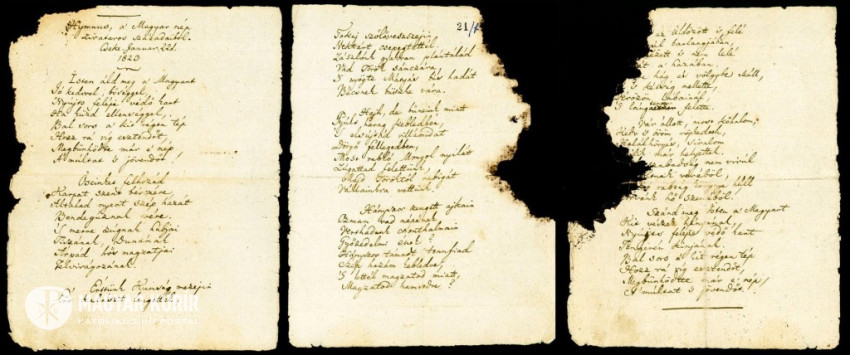 Hymnus, a' Magyar nép
zivataros századaiból.
Cseke Januar 22d.
1823
Isten áldd meg a Magyart
Jó kedvel, bőséggel,
Nyújts feléje védő kart
Ha küzd ellenséggel;
Bal sors a' kit régen tép
Hozz rá víg esztendőt,
Megbűnhődte már e' nép
A' múltat 's jövendőt!
Őseinket felhozád
Kárpát szent bérczére,
Általad nyert szép hazát
Bendegúznak vére.
'S merre zúgnak habjai
Tiszának, Dunának,
Árpád hős magzatjai
Felvirágozának.
Értünk Kunság mezején
kalászt lengettél,
21/
Tokaj szőlővesszein
Nektárt csepegtettél.
Zászlónk gyakran plántálád
Vad török sánczára,
'S nyögte Mátyás bús hadát
Bécsnek büszke vára.
Hajh, de bűneink miatt
Gyúlt harag kebledben,
'S elsújtád villámidat
Dörgő fellegedben,
Most rabló Mongol nyilát
Zúgattad felettünk,
Majd Töröktől rabigát
Vállainkra vettünk.
Hányszor zengett ajkain
Ozman vad népének
Vert hadunk csonthalmain
Győzedelmi ének!
Hányszor támadt tenfiad
Szép hazám kebledre,
'S lettél magzatod miatt,
Magzatod hamvedre?
üldözött 's felé
barlangjában,
nem lelé
a' hazában.
hág és völgybe száll,
's kétség mellette,
Vérözön lábainál,
'S lángtenger felette.
Vár állott, most kőhalom;
Kedv 's öröm röpkedtek,
Halálhörgés, siralom
már helyettek.
szabadság nem virúl
véréből,
rabság könnye hull
hő szeméből.
Szánd meg Isten a' Magyart
Kit vészek hányának,
Nyújts feléje védő kart
Tengerén kínjának.
Bal sors a' kit régen tép
Hozz rá víg esztendőt,
Megbűnhődte már e' nép
A' múltat 's jövendőt.
MAGYAR KURÍR
KATOLIKUS HÍRPORTÁL